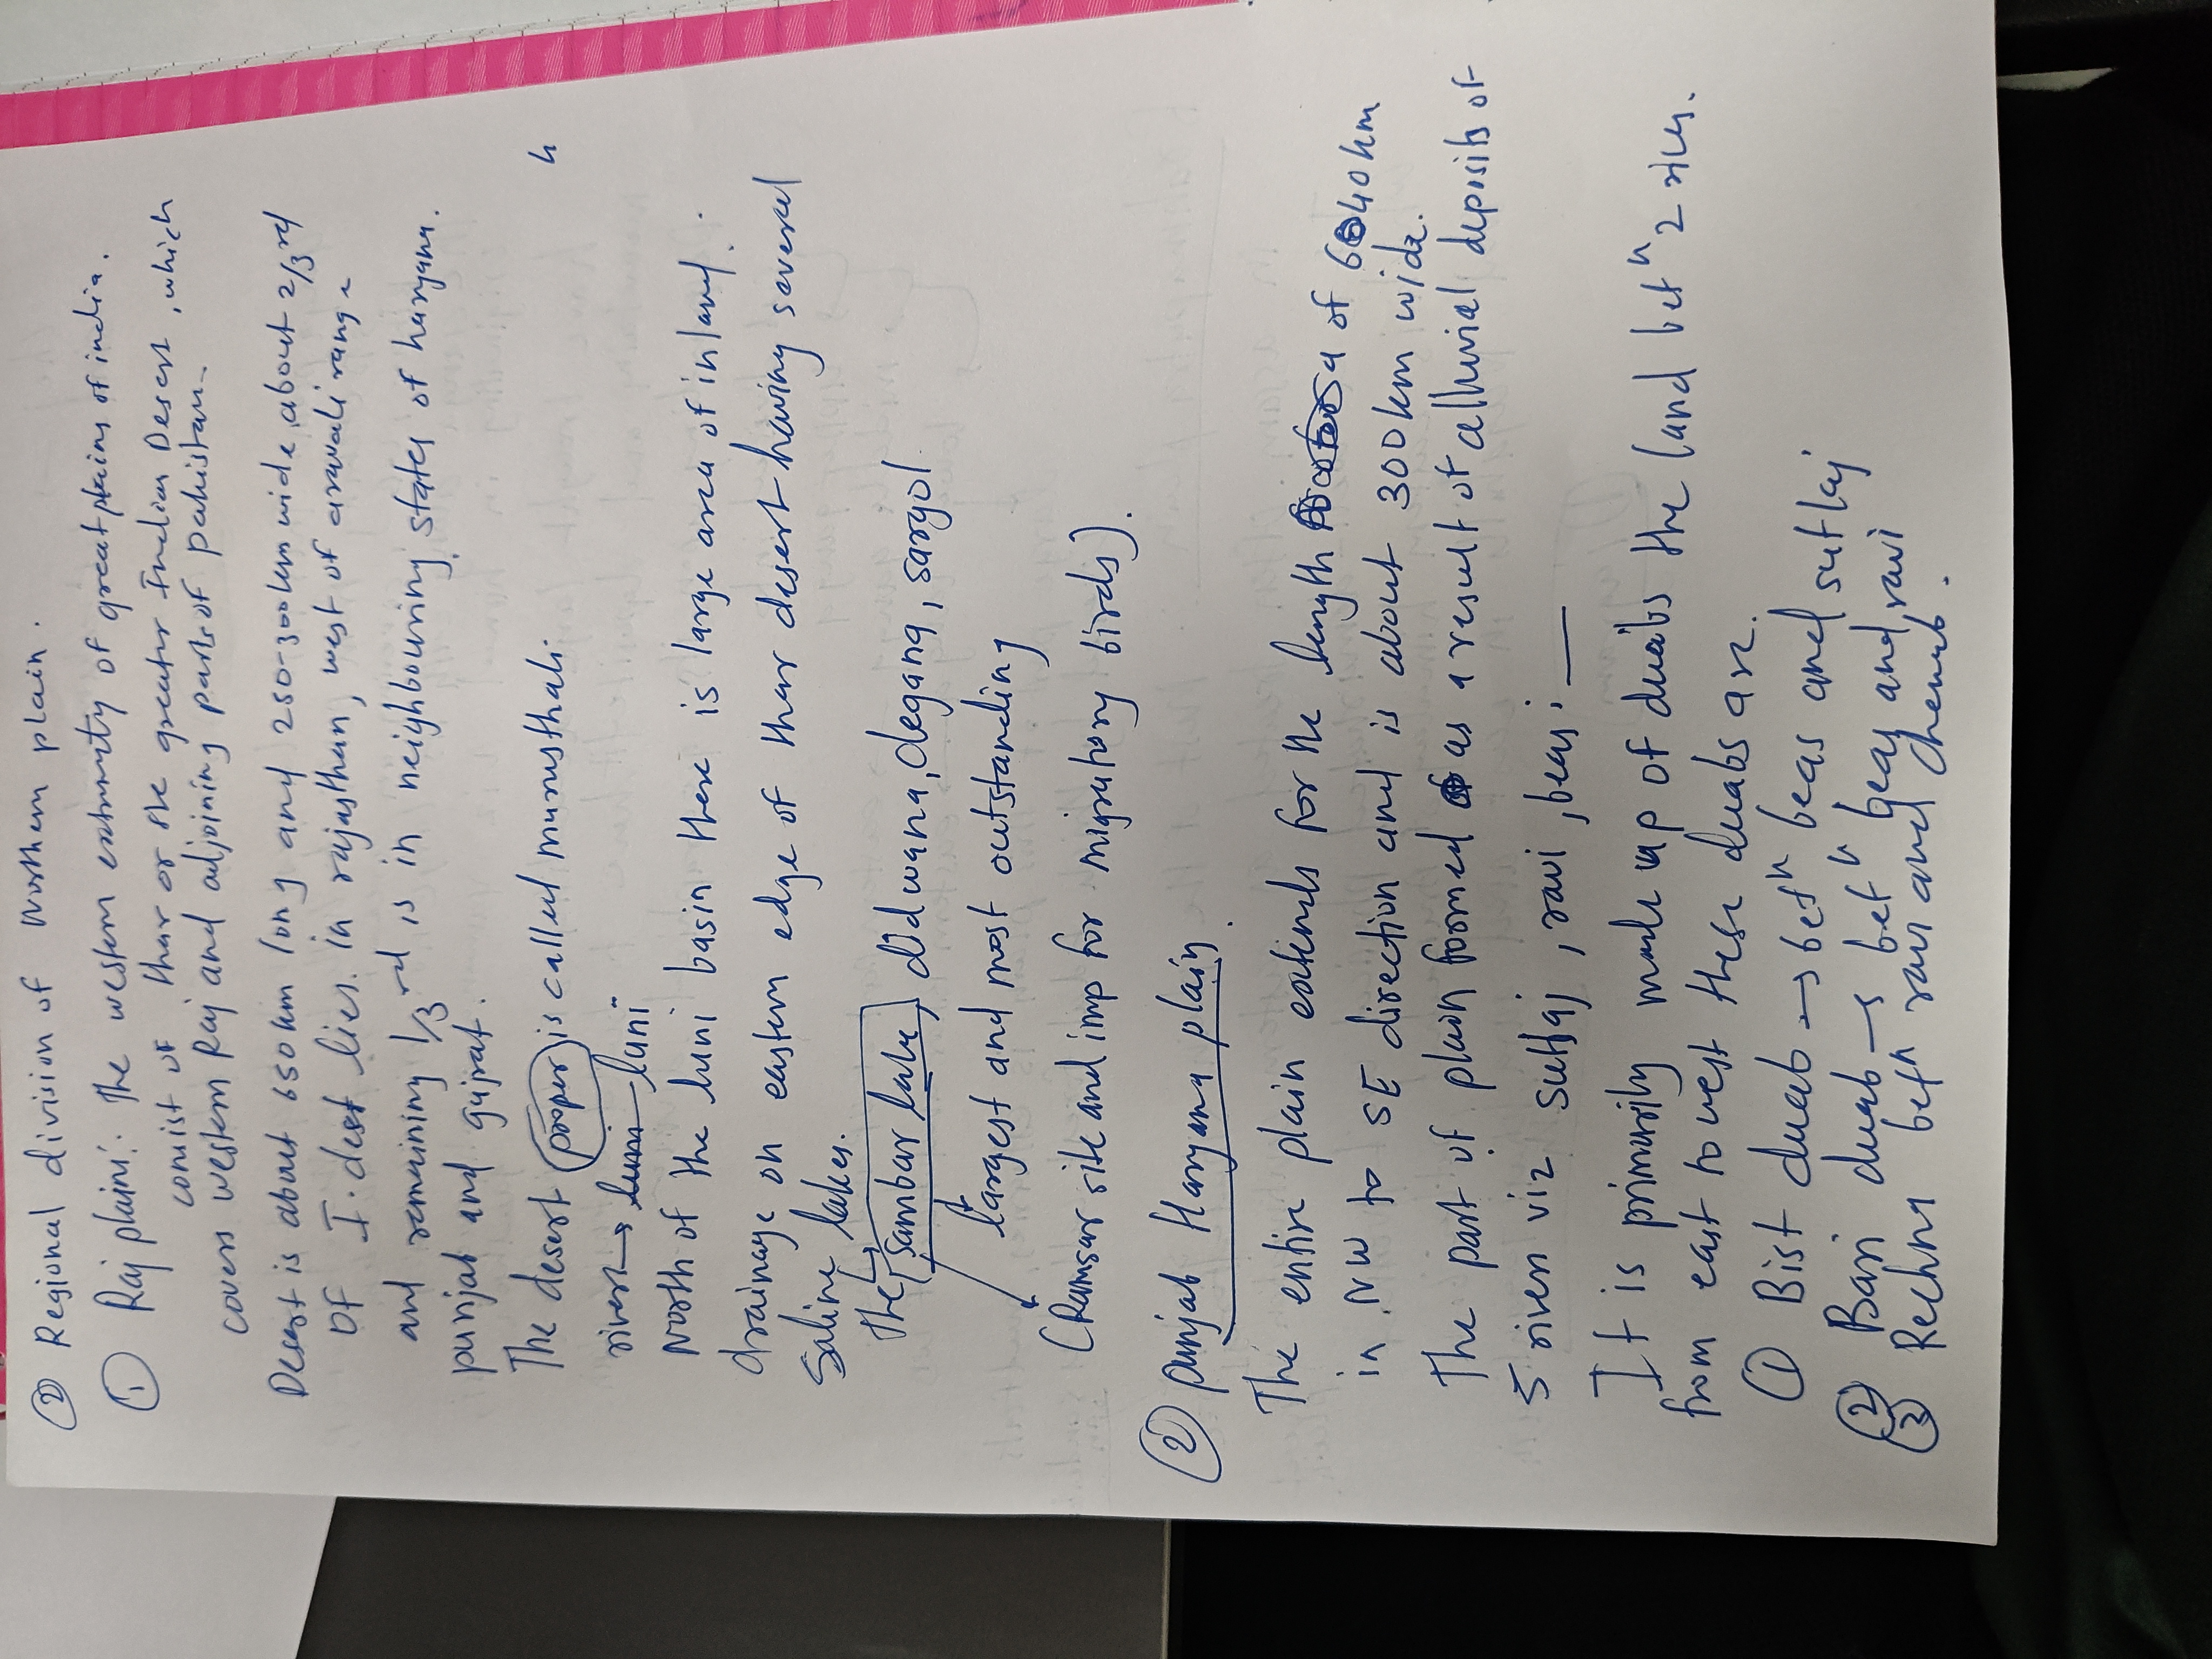 ② Regional division of Northern plain.
① Raj plain: The western extremity of great plains of india.
consist of thar or the greater Indian Desert, which
covers western Raj and adjoining parts of pakistan.
Desert is about 650km long and 250-300km wide, about 2/3rd
of I. dest lies. in rajasthan, west of aravali range
and remaining 1/3rd is in neighbouring states of haryana.
punjab and gujrat.
The desert proper is called marusthali.
river → luni
North of the luni basin there is large area of inland.
drainage on eastern edge of thar desert having several
Saline lakes.
The [Sambar lake], didwana, degana, sargol
largest and most outstanding
(Ramsar site and imp for migratory birds).
② punjab Haryana plain.
The entire plain extends for the length of 640km
in NW to SE direction and is about 300km wide.
The part of plain formed as a result of alluvial deposits of
5 rivers viz sutlaj, ravi, beas; —
It is primarily made up of duabs the land betn 2 rivers.
from east to west these duabs are.
① Bist duab → betn beas and sutlaj
② Bari duab → betn beas and ravi
③ Rechna betn ravi and chenab.